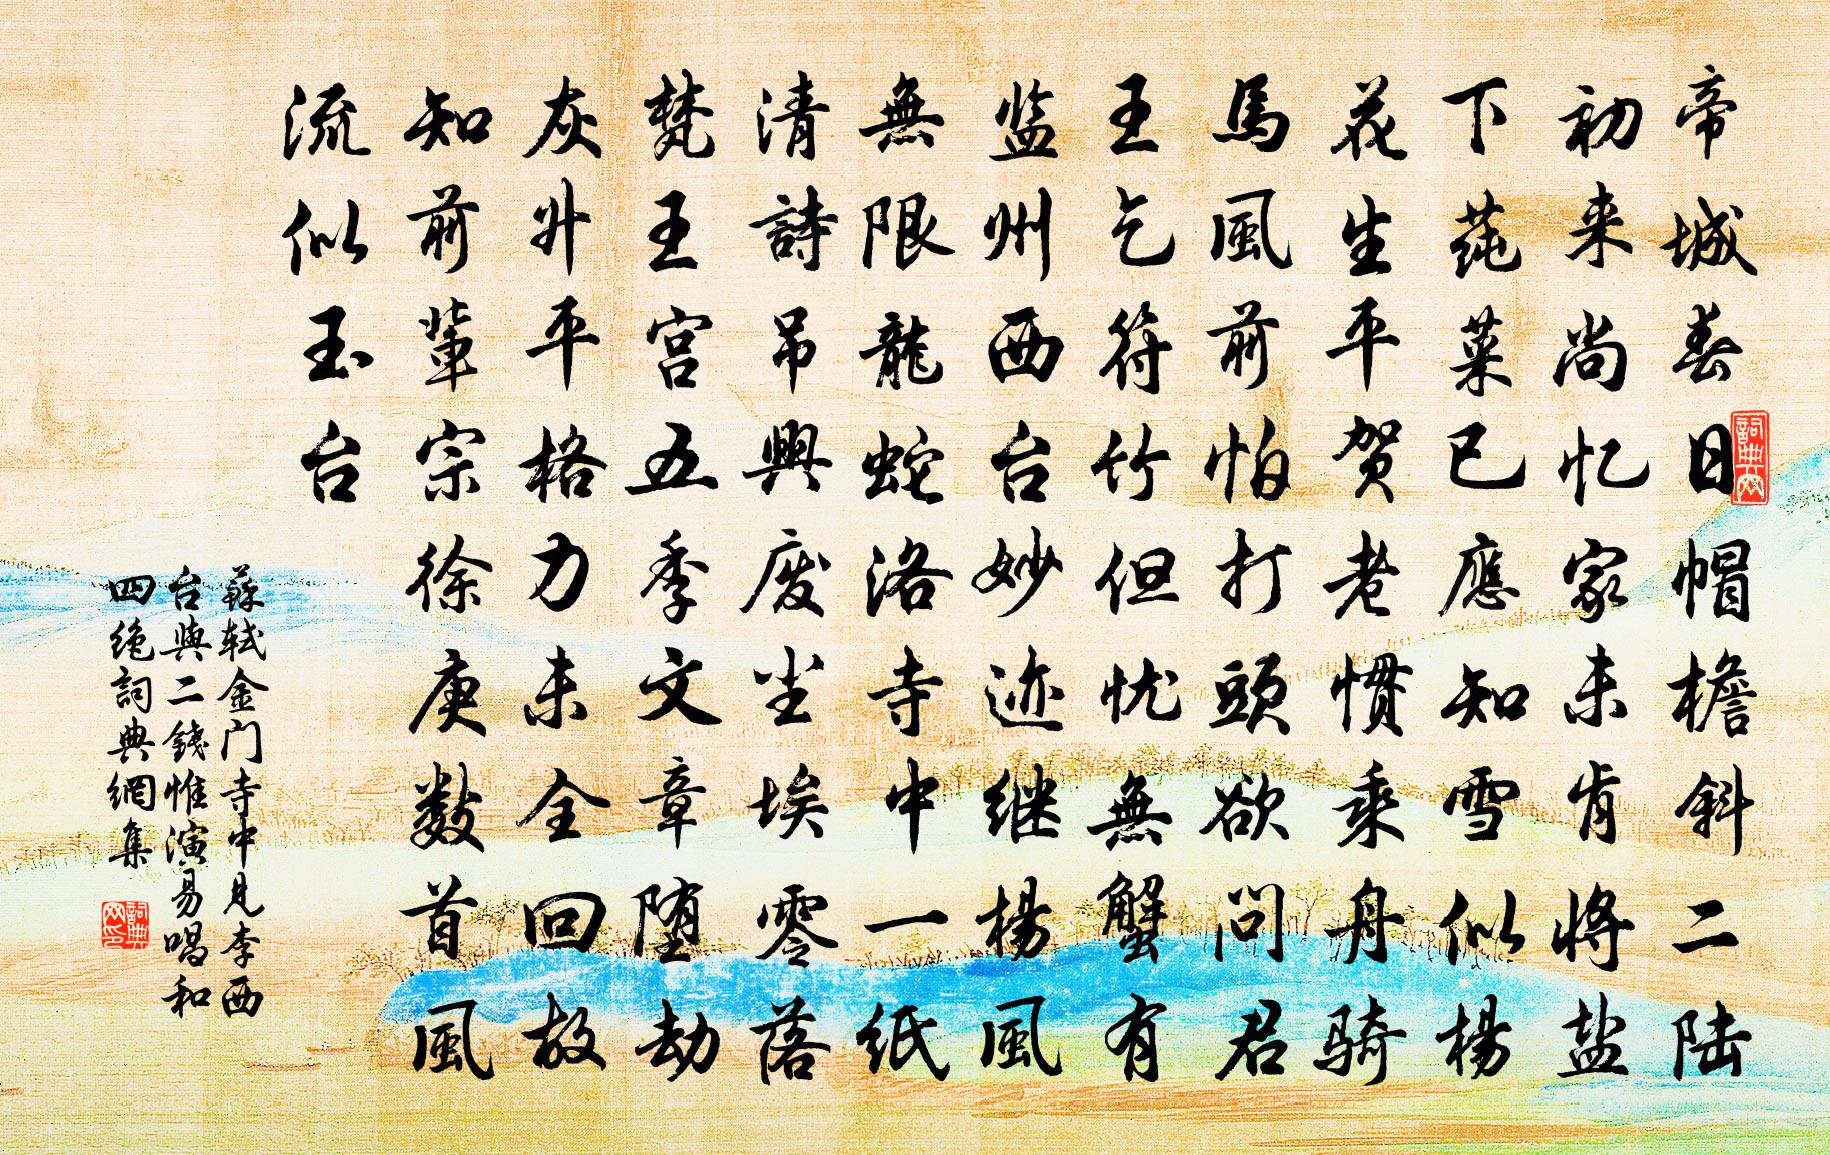 帝城春日帽檐斜二陆
初来尚忆家未肯将盐
下莼菜已應知雪似楊
花生平贺老惯乘舟骑
馬風前怕打頭欲问君
王乞符竹但忧無蟹有
监州西台妙迹继楊風
無限龍蛇洛寺中一纸
清詩吊興废尘埃零落
梵王宫五季文章堕劫
灰升平格力未全回故
知前輩宗徐庾数首風
流似玉台
蘇轼金门寺中見李西
台與二錢惟演易唱和
四绝詞典網集
詞典网
詞典网印